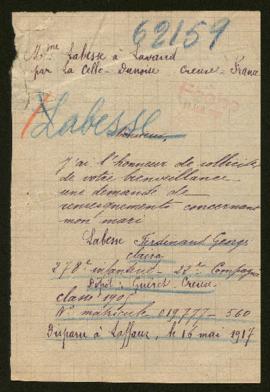 62159
Mme Labesse à Lavaud
par La Celle-Dunoise Creuse - France
Labesse
Monsieur,
J'ai l'honneur de solliciter
de votre bienveillance
une demande de
renseignements concernant
mon mari
Labesse Ferdinand Georges
278e infanterie - 22e Compagnie
Dépôt à Guéret - Creuse
classe 1905
No matricule 019.777 - 560
Disparu à Laffaux, le 16 mai 1917